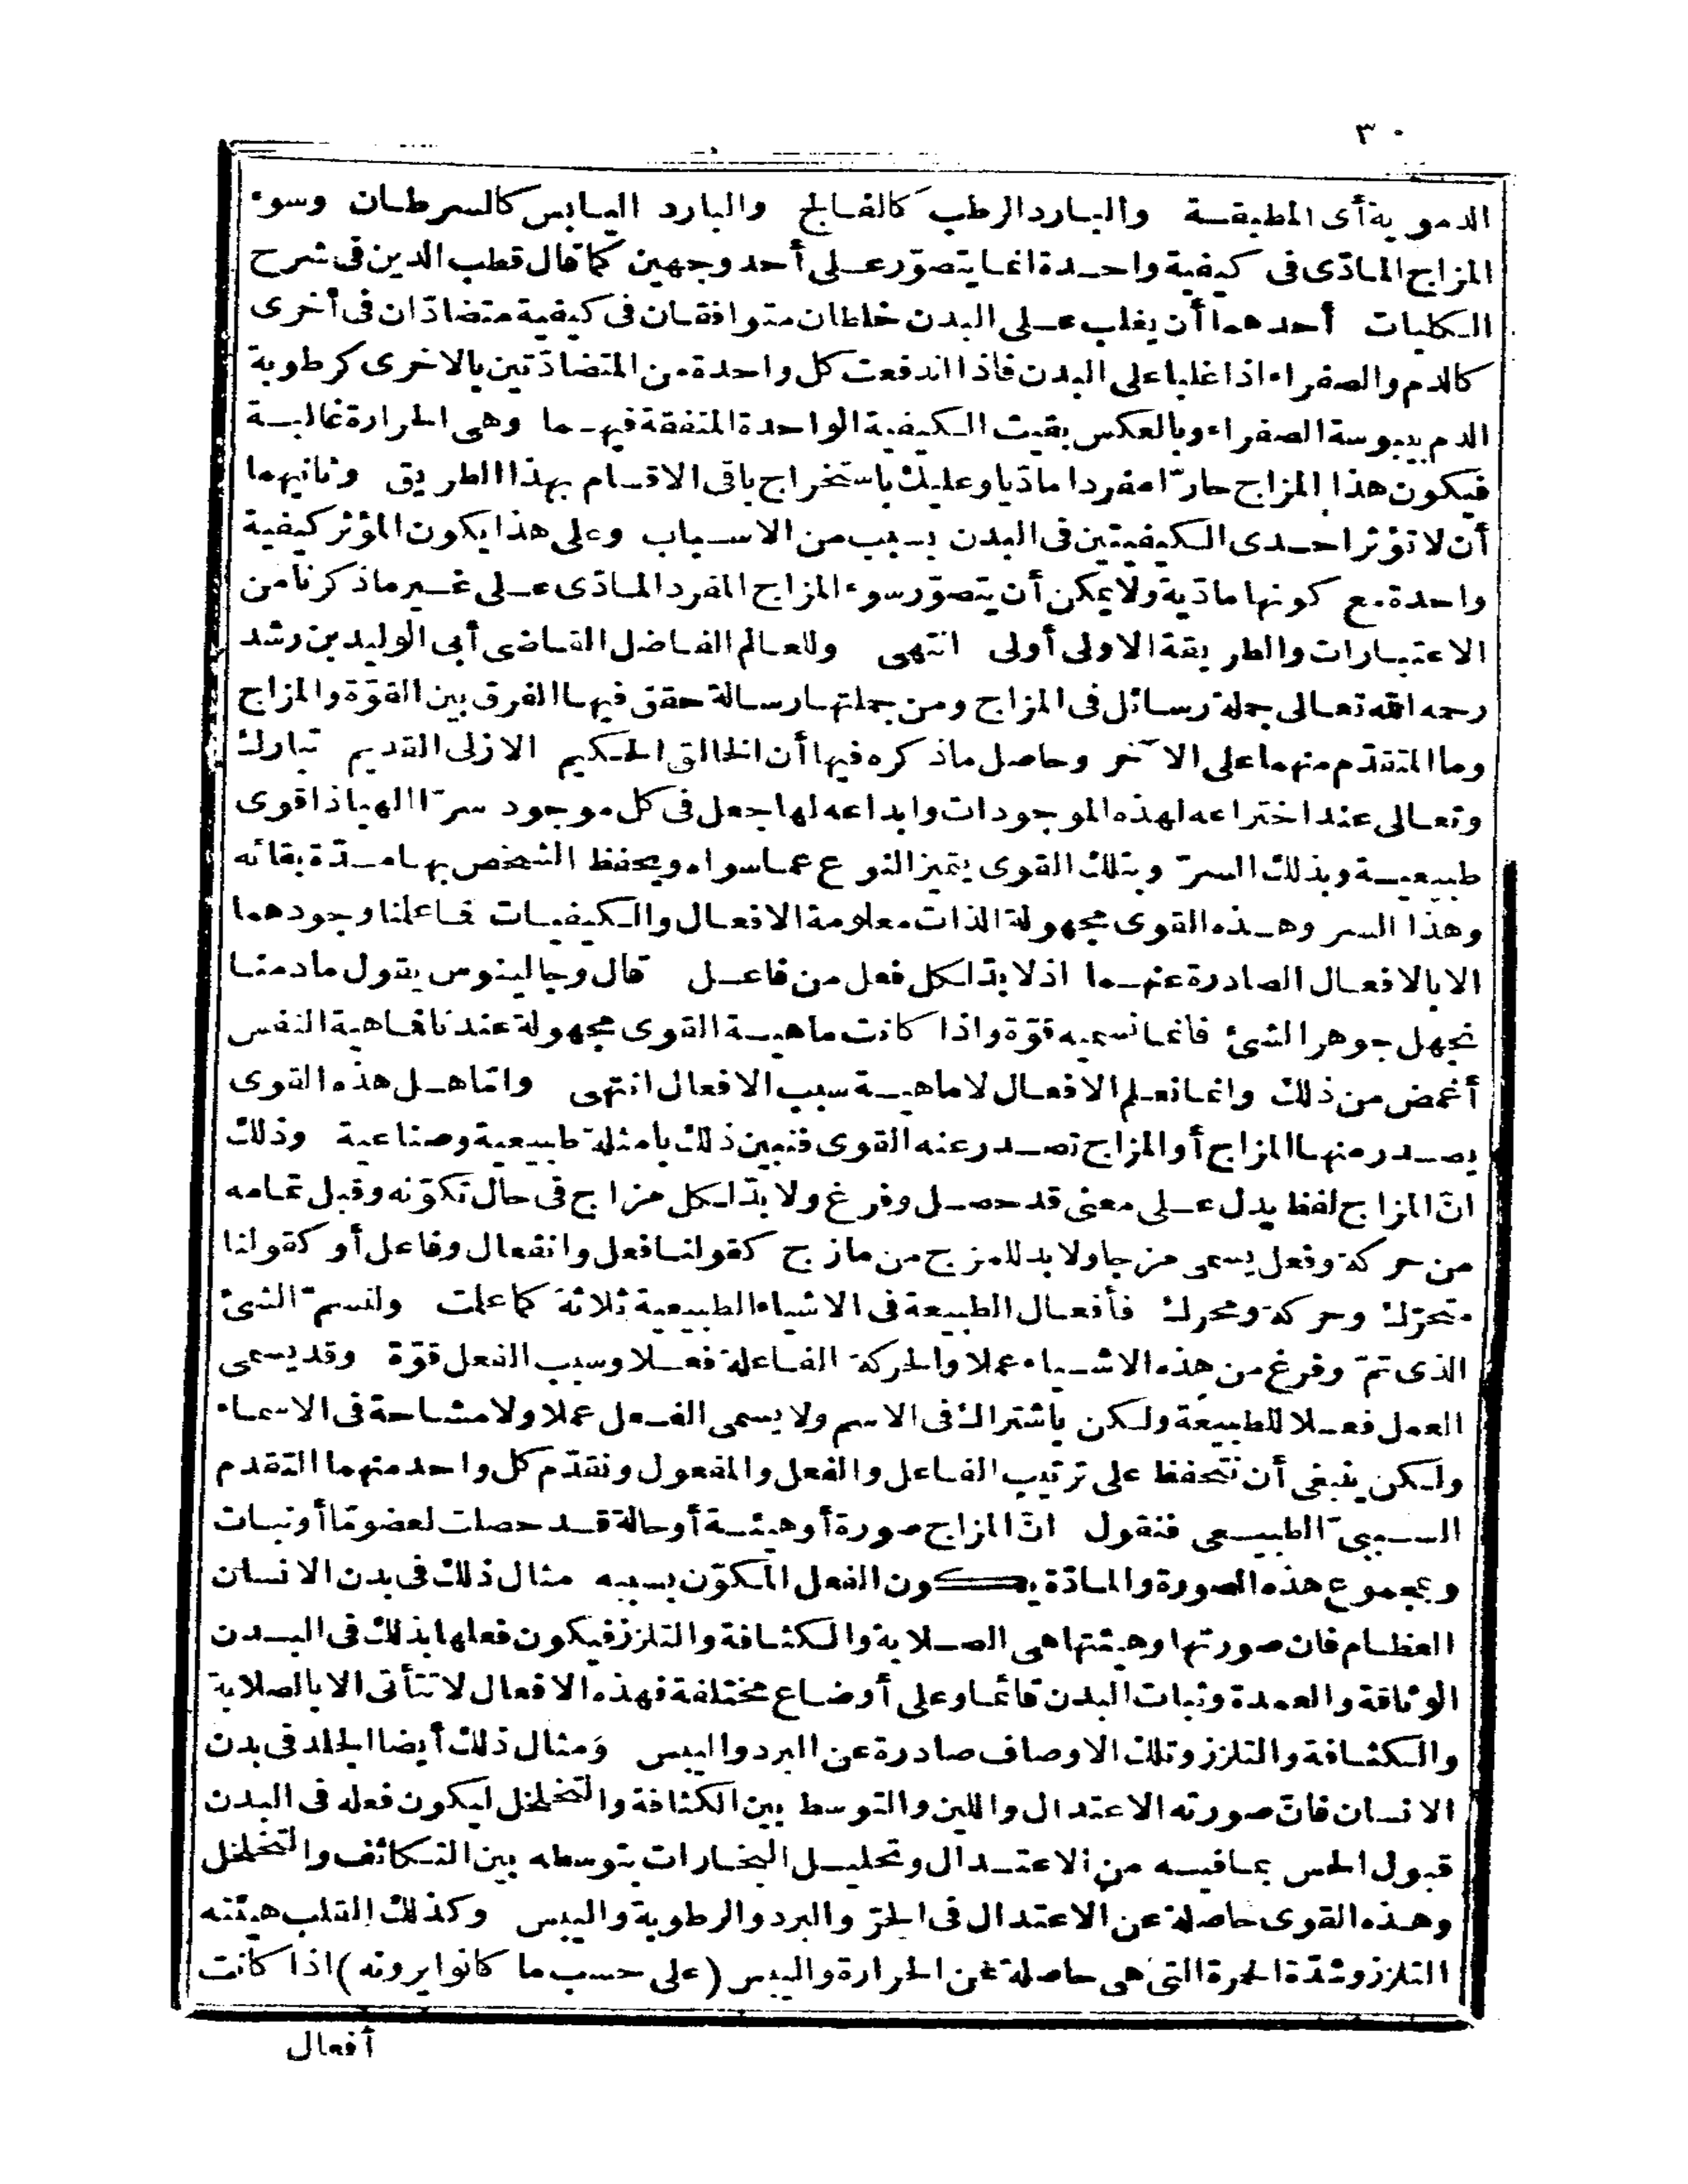 ٣٠
الدموية أى المطبقة والبارد الرطب كالفالج والبارد اليابس كالسرطان وسوء
المزاج المادّى فى كيفية واحدة انما يتصوّر على أحد وجهين كما قال قطب الدين فى شرح
الكليات أحدهما أن يغلب على البدن خلطان متوافقان فى كيفية متضادّان فى أخرى
كالدم والصفراء اذا غلبا على البدن فاذا اندفعت كل واحدة من المتضادّتين بالاخرى كرطوبة
الدم بيبوسة الصفراء وبالعكس بقيت الكيفية الواحدة المتفقة فيهما وهى الحرارة غالبة
فيكون هذا المزاج حارّا مفردا مادّيا وعليك باستخراج باقى الاقسام بهذا الطريق وثانيهما
أن لا تؤثر احدى الكيفيتين فى البدن بسبب من الاسباب وعلى هذا يكون المؤثر كيفية
واحدة مع كونها مادّية ولا يمكن أن يتصوّر سوء المزاج المفرد المادّى على غير ما ذكرنا من
الاعتبارات والطريقة الاولى أولى انتهى وللعالم الفاضل القاضى أبى الوليد بن رشد
رحمه الله تعالى جملة رسائل فى المزاج ومن جملتها رسالة حقق فيها الفرق بين القوّة والمزاج
وما المتقدّم منهما على الآخر وحاصل ما ذكره فيها أن الخالق الحكيم الازلى القديم تبارك
وتعالى عند اختراعه لهذه الموجودات وابداعه لها جعل فى كل موجود سرّا الهيا ذا قوى
طبيعية وبذلك السرّ وبتلك القوى يتميز النوع عما سواه ويحفظ الشخص بها مدّة بقائه
وهذا السر وهذه القوى مجهولة الذات معلومة الافعال والكيفيات فما علمنا وجودهما
الا بالافعال الصادرة عنهما اذ لا بدّ لكل فعل من فاعل قال وجالينوس يقول ما دمنا
نجهل جوهر الشئ فانما نسميه قوّة واذا كانت ماهية القوى مجهولة عندنا فماهية النفس
أغمض من ذلك وانما نعلم الافعال لا ماهية سبب الافعال انتهى وامّا هل هذه القوى
يصدر منها المزاج أو المزاج تصدر عنه القوى فنبين ذلك بامثلة طبيعية وصناعية وذلك
انّ المزاج لفظ يدل على معنى قد حصل وفرغ ولا بدّ لكل مزاج فى حال تكوّنه وقبل تمامه
من حركة وفعل يسمى مزجا ولا بد للمزج من مازج كقولنا فعل وانفعال وفاعل أو كقولنا
متحرّك وحركة ومحرك فأفعال الطبيعة فى الاشياء الطبيعية ثلاثة كما علمت ولنسمّ الشئ
الذى تمّ وفرغ من هذه الاشياء عملا والحركة الفاعلة فعلا وسبب الفعل قوّة وقد يسمى
العمل فعلا للطبيعة ولكن باشتراك فى الاسم ولا يسمى الفعل عملا ولا مشاحة فى الاسماء
ولكن ينبغى أن نتحفظ على ترتيب الفاعل والفعل والمفعول ونقدّم كل واحد منهما التقدم
السببىّ الطبيعى فنقول انّ المزاج صورة أو هيئة أو حالة قد حصلت لعضو مّا أو نبات
وبمجموع هذه الصورة والمادّة يكون الفعل المكوّن بسببه مثال ذلك فى بدن الانسان
العظام فان صورتها وهيئتها هى الصلابة والكثافة والتلزز فيكون فعلها بذلك فى البدن
الوثاقة والعمدة وثبات البدن قائما وعلى أوضاع مختلفة فهذه الافعال لا تتأتى الا بالصلابة
والكثافة والتلزز وتلك الاوصاف صادرة عن البرد واليبس ومثال ذلك أيضا الجلد فى بدن
الانسان فانّ صورته الاعتدال واللين والتوسط بين الكثافة والتخلخل ليكون فعله فى البدن
قبول الحس بما فيه من الاعتدال وتحليل البخارات بتوسطه بين التكاثف والتخلخل
وهذه القوى حاصلة عن الاعتدال فى الحرّ والبرد والرطوبة واليبس وكذلك القلب هيئته
التلزز وشدّة الحرة التى هى حاصلة عن الحرارة واليبس (على حسب ما كانوا يرونه) اذا كانت
أفعال